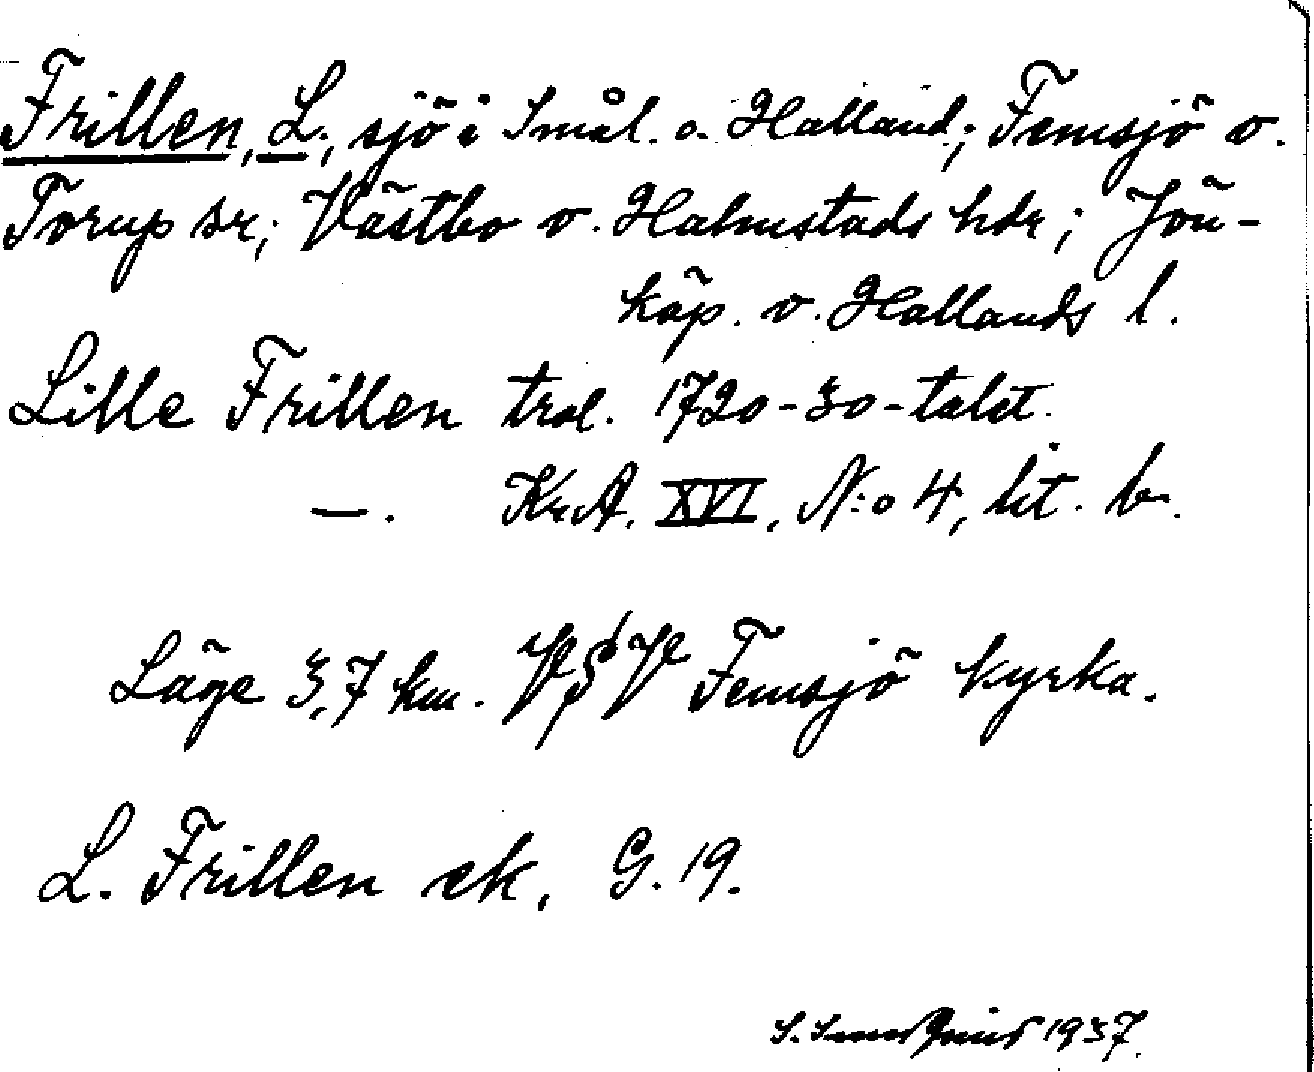 Frillen, L., sjö i Smål. o. Halland; Femsjö o.
Torup snr; Västbo o. Halmstads hdr; Jön-
köp. o. Hallands l.
Lille Frillen trol. 1720-30-talet.
—. Kr.A. XVI, N:o 4, lit. b.
Läge 3,7 km. VSV Femsjö kyrka.
L. Frillen ek, G. 19.
S. 1937.